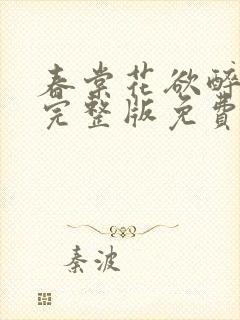 春棠花欲醉
完整版免費
秦波